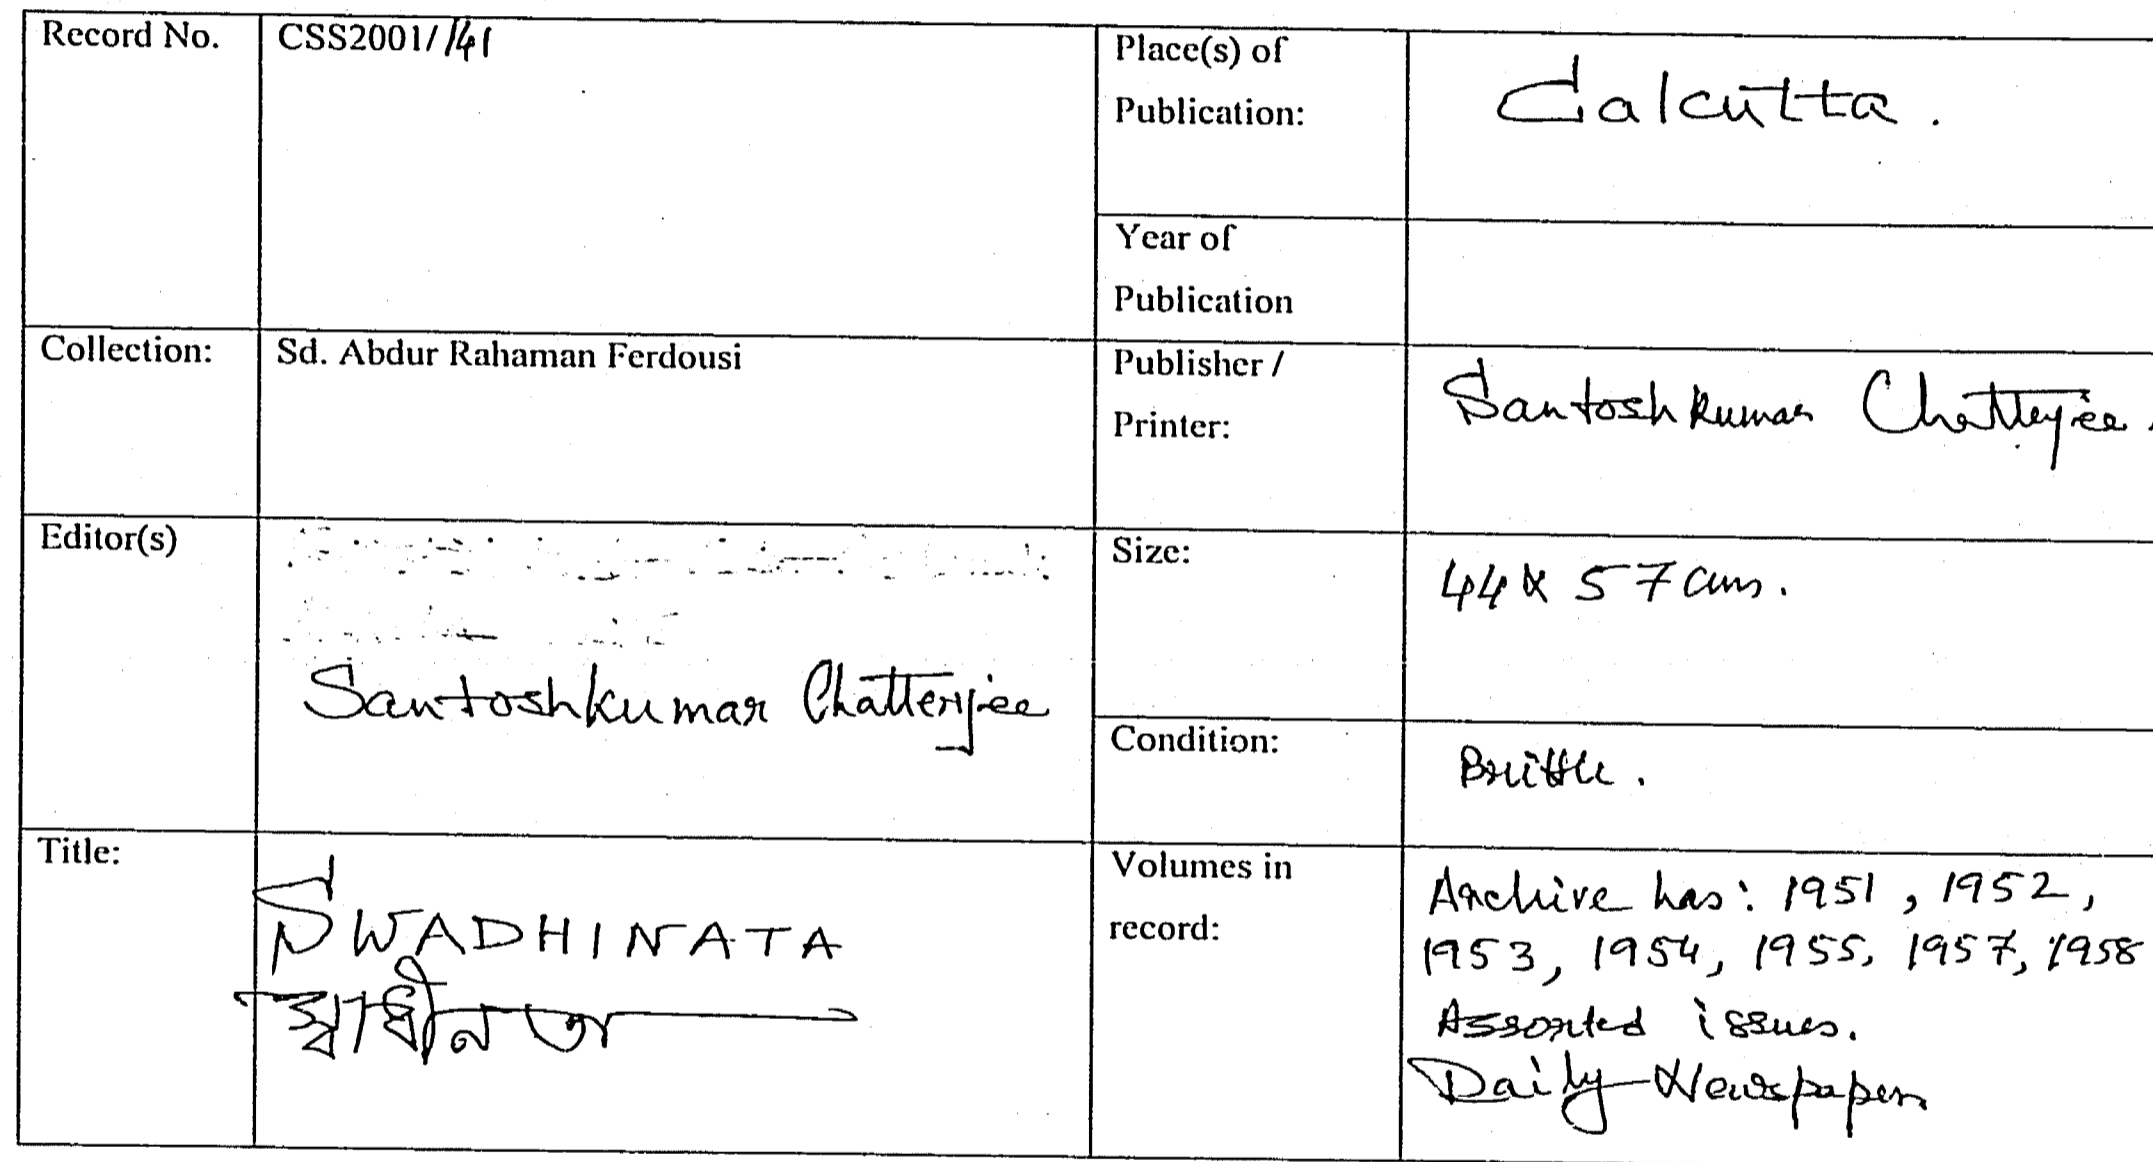 Record No.
CSS2001/141
Place(s) of
Publication:
Calcutta.
Year of
Publication
Collection:
Sd. Abdur Rahaman Ferdousi
Publisher /
Printer:
Santoshkumar Chatterjee.
Editor(s)
Santoshkumar Chatterjee
Size:
44 x 57 cms.
Condition:
Brittle.
Title:
SWADHINATA
স্বাধীনতা
Volumes in
record:
Archive has: 1951, 1952,
1953, 1954, 1955, 1957, 1958
Assorted issues.
Daily Newspaper